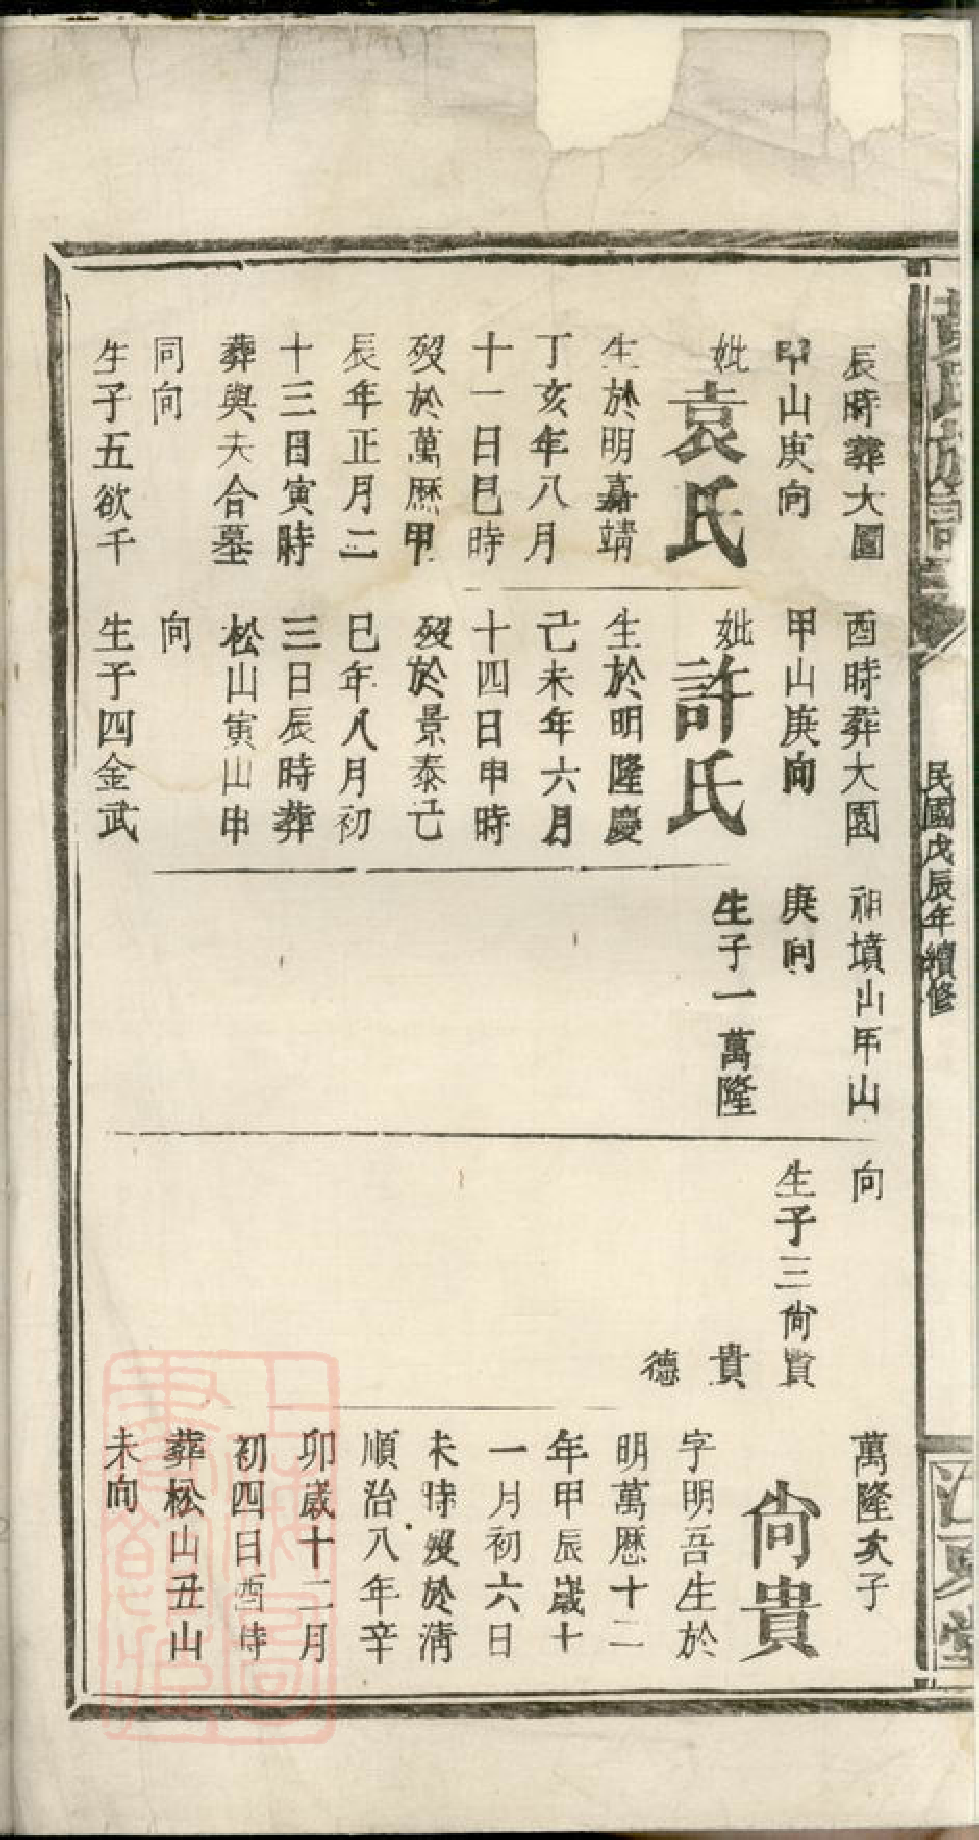 黃氏族譜
民國戊辰年續修
江夏堂
辰時葬大園
甲山庚向
妣袁氏
生於明嘉靖
丁亥年八月
十一日巳時
歿於萬厯甲
辰年正月二
十三日寅時
葬與夫合墓
同向
生子五欲千
酉時葬大園
甲山庚向
妣許氏
生於明隆慶
己未年六月
十四日申時
歿於景泰己
巳年八月初
三日辰時葬
松山寅山申
向
生子四金武
祖墳山甲山
庚向
生子一萬隆
向
生子三尙賢
貴
德
萬隆次子
尙貴
字明吾生於
明萬厯十二
年甲辰歲十
一月初六日
未時歿於淸
順治八年辛
卯歲十二月
初四日酉時
葬松山丑山
未向